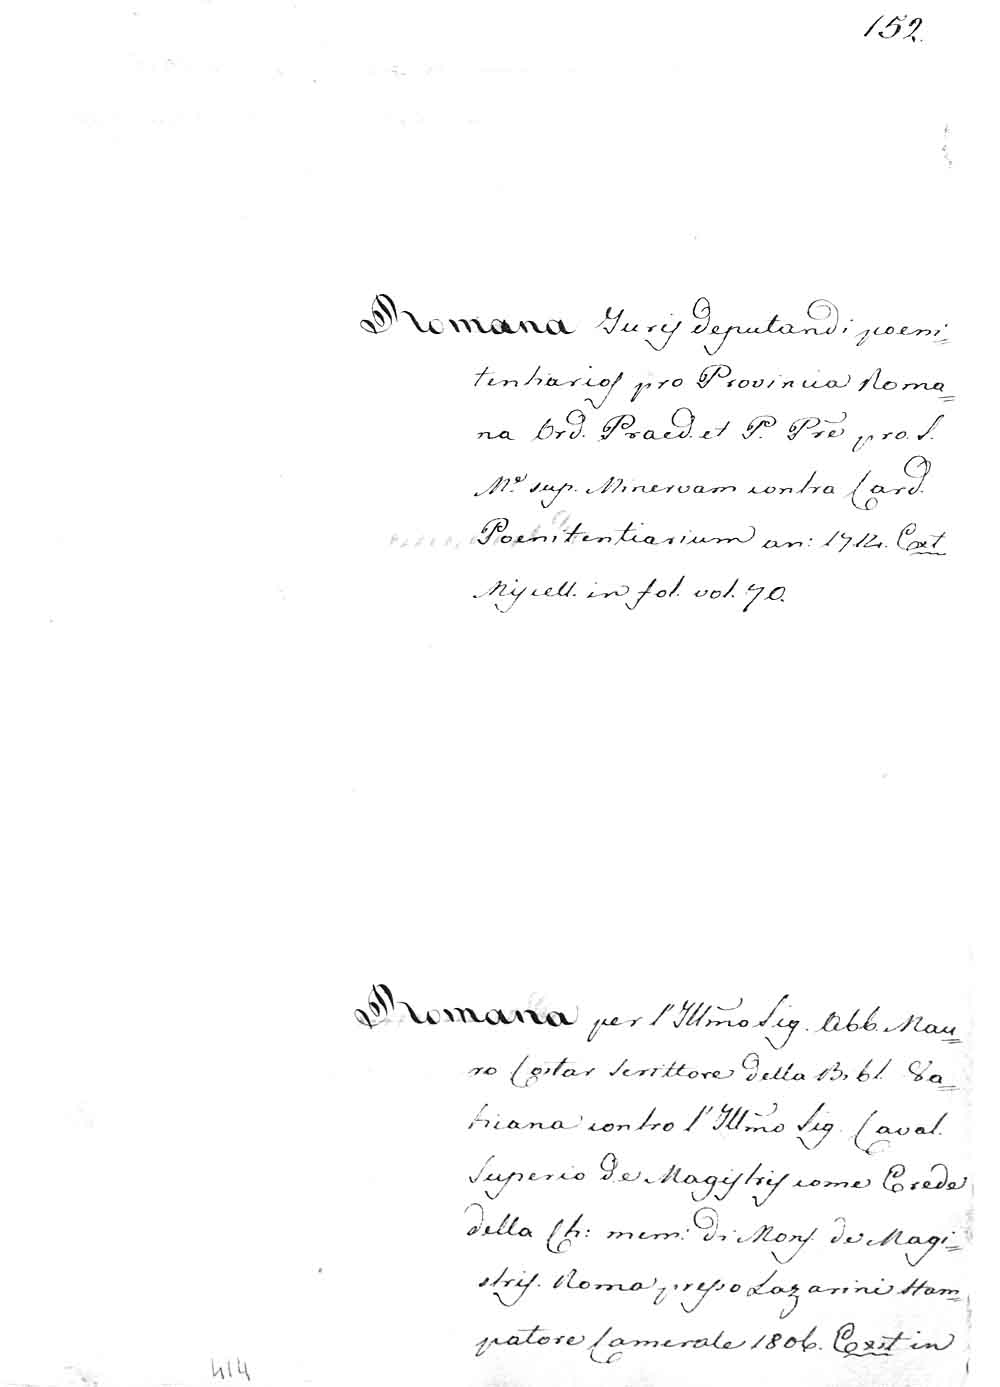 152.
Romana Juris deputandi poeni=
tentiarios pro Provincia Roma=
na Ord. Praed. et P. Pre pro S.
Mª sup. Minervam contra Card.
Poenitentiarium an: 1712. Exst
Miscell. in fol. vol. 70.
Romana per l'Illmo Sig. Abb. Mau=
ro Costar Scrittore della Bibl. Va=
ticana contro l'Illmo Sig. Caval.
Superio De Magistris come Erede
della Ch: mem: di Mons. de Magi=
stris. Roma presso Lazarini Stam=
patore Camerale 1806. Exst in
414